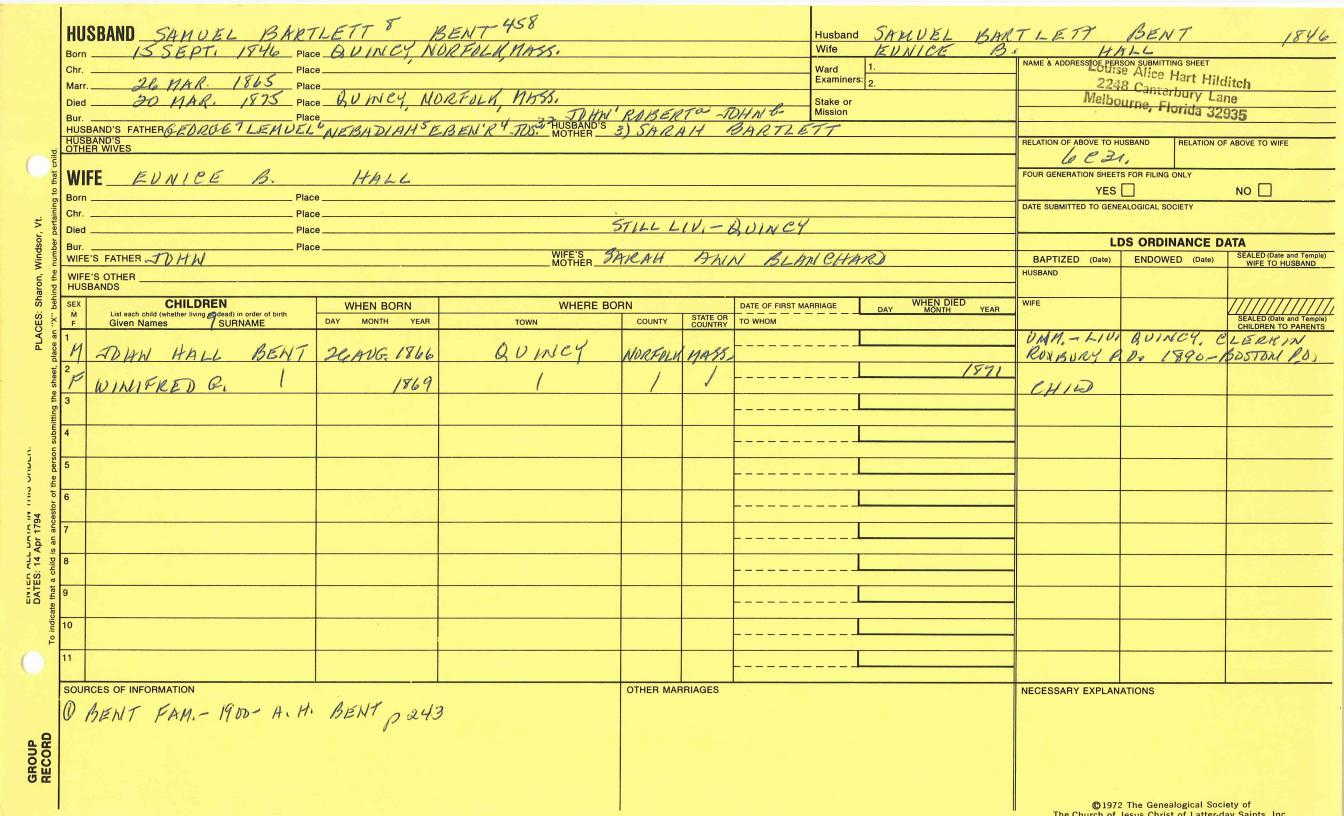 HUSBAND SAMUEL BARTLETT 8 BENT 458
Born 15 SEPT. 1846 Place QUINCY, NORFOLK, MASS.
Chr. Place
Marr. 26 MAR. 1865 Place
Died 20 MAR. 1875 Place QUINCY, NORFOLK, MASS.
Bur. Place JOHN' ROBERT JOHN
HUSBAND'S FATHER GEORGE 7 LEMUEL 6 NEBADIAH 5 EBEN'R 4 JOS. HUSBAND'S MOTHER 3) SARAH BARTLETT
HUSBAND'S OTHER WIVES
Husband SAMUEL BARTLETT BENT 1846
Wife EUNICE B. HALL
Ward Examiners: 1.
2.
Stake or Mission
NAME & ADDRESS OF PERSON SUBMITTING SHEET
Louise Alice Hart Hilditch
2248 Canterbury Lane
Melbourne, Florida 32935
RELATION OF ABOVE TO HUSBAND RELATION OF ABOVE TO WIFE
FOUR GENERATION SHEETS FOR FILING ONLY
YES NO
DATE SUBMITTED TO GENEALOGICAL SOCIETY
WIFE EUNICE B. HALL
Born Place
Chr. Place
Died Place STILL LIV.- QUINCY
Bur. Place
WIFE'S FATHER JOHN WIFE'S MOTHER SARAH ANN BLANCHARD
WIFE'S OTHER HUSBANDS
LDS ORDINANCE DATA
BAPTIZED (Date) ENDOWED (Date) SEALED (Date and Temple) WIFE TO HUSBAND
HUSBAND
WIFE
SEALED (Date and Temple) CHILDREN TO PARENTS
SEX M F CHILDREN WHEN BORN WHERE BORN DATE OF FIRST MARRIAGE WHEN DIED
List each child (whether living or dead) in order of birth
Given Names 9 SURNAME DAY MONTH YEAR TOWN COUNTY STATE OR COUNTRY TO WHOM DAY MONTH YEAR
1 M JOHN HALL BENT 26 AUG. 1866 QUINCY NORFOLK MASS. UNM. - LIV. QUINCY, CLERK IN
ROXBURY P.O. 1890 - BOSTON P.O.
2 F WINIFRED G. 1869 1871 CHILD
3
4
5
6
7
8
9
10
11
SOURCES OF INFORMATION OTHER MARRIAGES NECESSARY EXPLANATIONS
① BENT FAM. - 1900 - A. H. BENT p 243
©1972 The Genealogical Society of
The Church of Jesus Christ of Latter-day Saints, Inc.
PLACES: Sharon, Windsor, Vt.
ENTER ALL DATA IN THIS ORDER:
DATES: 14 Apr 1794
To indicate that a child is an ancestor of the person submitting the sheet, place an "X" behind the number pertaining to that child.
GROUP RECORD